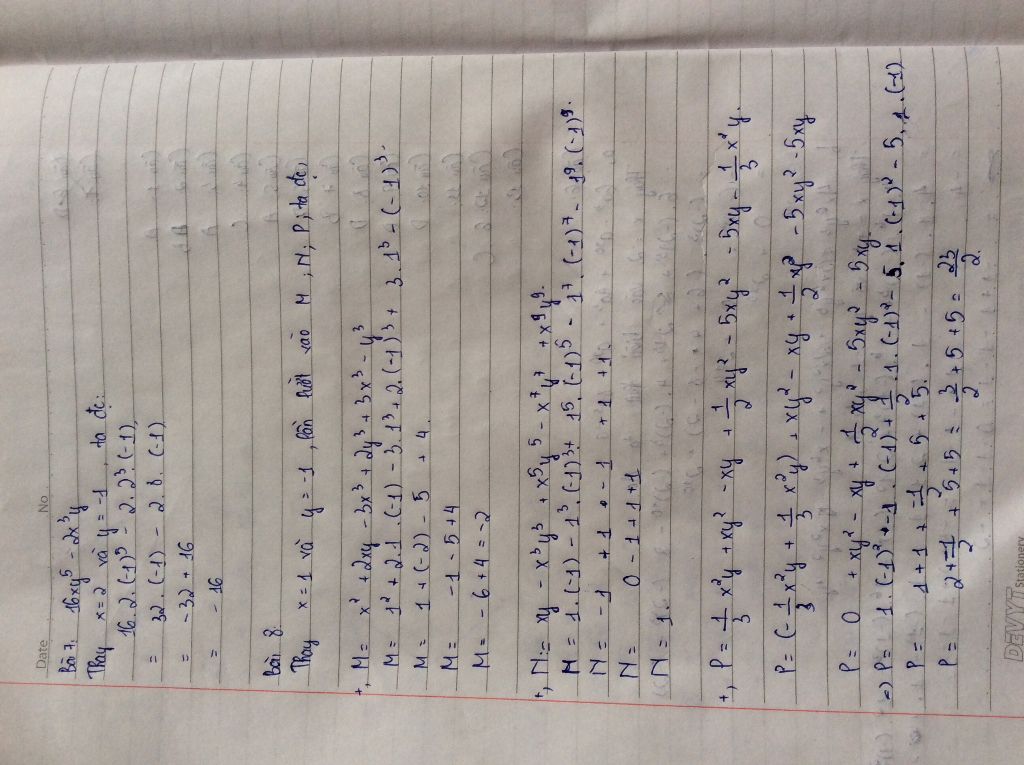 Date No
Bài 7. 16xy⁵ - 2x³y
Thay x = 2 và y = -1, ta đc:
16.2.(-1)⁵ - 2.2³.(-1)
= 32.(-1) - 2.8.(-1)
= -32 + 16
= -16
Bài 8.
Thay x = 1 và y = -1, lần lượt vào M, N, P; ta đc:
+, M = x² + 2xy - 3x³ + 2y³ + 3x³ - y³
M = 1² + 2.1.(-1) - 3.1³ + 2.(-1)³ + 3.1³ - (-1)³.
M = 1 + (-2) - 5 + 4.
M = -1 - 5 + 4
M = -6 + 4 = -2
+, N = xy - x³y³ + x⁵y⁵ - x⁷y⁷ + x⁹y⁹.
N = 1.(-1) - 1³.(-1)³ + 1⁵.(-1)⁵ - 1⁷.(-1)⁷ - 1⁹.(-1)⁹.
N = -1 + 1 - 1 + 1 + 1.
N = 0 - 1 + 1 + 1
N = 1.
+, P = -1/3 x²y + xy² - xy + 1/2 xy² - 5xy² - 5xy - 1/3 x²y.
P = (-1/3 x²y + 1/3 x²y) + xy² - xy + 1/2 xy² - 5xy² - 5xy
P = 0 + xy² - xy + 1/2 xy² - 5xy² - 5xy
=> P = 1.(-1)² - 1.(-1) + 1/2.1.(-1)² - 5.1.(-1)² - 5.1.(-1)
P = 1 + 1 + -1/2 + 5 + 5.
P = 2 + -1/2 + 5 + 5 = 3/2 + 5 + 5 = 23/2.
DEVYT Stationery